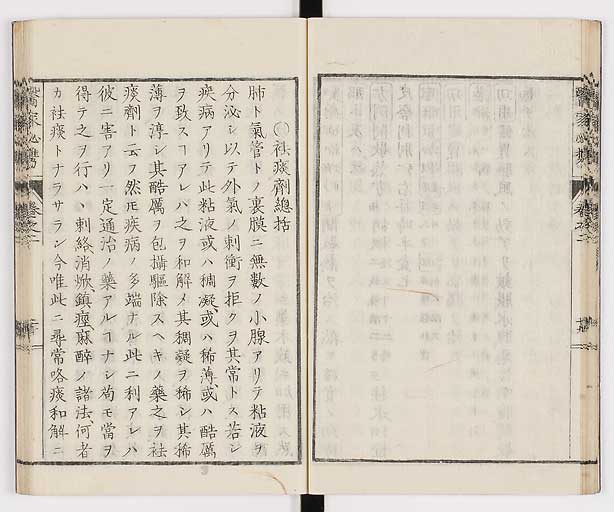 〇袪痰劑總括
肺ト氣管トノ裏膜ニ無數ノ小腺アリテ粘液ヲ
分泌シ以テ外氣ノ刺衝ヲ拒クヲ其常トス若シ
疾病アリテ此粘液或ハ稠凝或ハ稀薄或ハ酷厲
ヲ致スヿアレハ之ヲ和解メ其稠凝ヲ稀シ其稀
薄ヲ淳シ其酷厲ヲ包攝驅除スヘキノ藥之ヲ袪
痰劑ト云フ然𪜈疾病ノ多端ナル此ニ利アレハ
彼ニ害アリ一定通治ノ藥アルヿナシ苟モ當ヲ
得テ之ヲ行ハヽ刺絡消焮鎭痙麻醉ノ諸法何者
カ袪痰トナラサラン今唯此ニ尋常咯痰和解ニ
卷之二